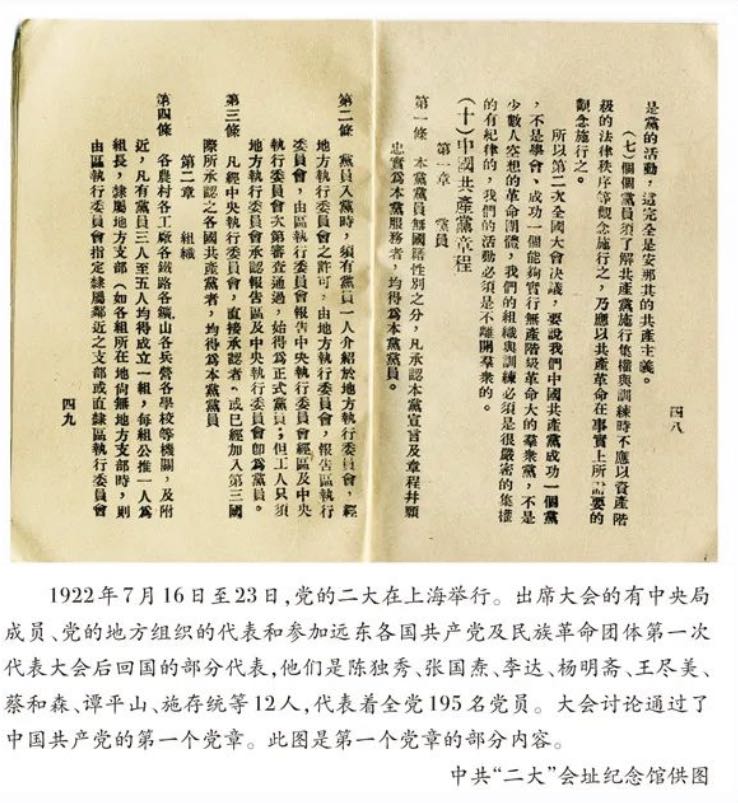 是黨的活動，這完全是安那其的共產主義。
（七）個個黨員須了解共產黨施行集權與訓練時不應以資產階
級的法律秩序等觀念施行之，乃應以共產革命在事實上所需要的
觀念施行之。
所以第二次全國大會决議，要說我們中國共產黨成功一個黨
，不是學會、成功一個能夠實行無產階級革命大的羣衆黨，不是
少數人空想的革命團體，我們的組織與訓練必須是很嚴密的集權
的有紀律的，我們的活動必須是不離開羣衆的。
（十）中國共產黨章程
第一章　黨員
第一條　本黨黨員無國籍性別之分，凡承認本黨宣言及章程幷願
忠實爲本黨服務者，均得爲本黨黨員。
四八
第二條　黨員入黨時，須有黨員一人介紹於地方執行委員會，經
地方執行委員會之許可，由地方執行委員會，報告區執行
委員會，由區執行委員會報告中央執行委員會經區及中央
執行委員會次第審查通過，始得爲正式黨員；但工人只須
地方執行委員會承認報告區及中央執行委員會卽爲黨員。
第三條　凡經中央執行委員會，直接承認者、或已經加入第三國
際所承認之各國共產黨者，均得爲本黨黨員
第二章　組織
第四條　各農村各工廠各鐵路各鑛山各兵營各學校等機關，及附
近，凡有黨員三人至五人均得成立一組，每組公推一人爲
組長，隸屬地方支部（如各組所在地尙無地方支部時，則
由區執行委員會指定隸屬鄰近之支部或直隸區執行委員會
四九
1922年7月16日至23日,党的二大在上海举行。出席大会的有中央局
成员、党的地方组织的代表和参加远东各国共产党及民族革命团体第一次
代表大会后回国的部分代表,他们是陈独秀、张国焘、李达、杨明斋、王尽美、
蔡和森、谭平山、施存统等12人,代表着全党195名党员。大会讨论通过了
中国共产党的第一个党章。此图是第一个党章的部分内容。
中共“二大”会址纪念馆供图